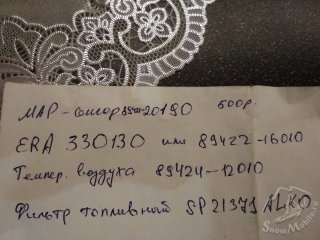 МАР-сенсор 89420-20190 600р.
ERA 330130 или 89422-16010
Темпер. воздуха 89424-12010
Фильтр топливный SP 21371 ALKO
SnowMobile.ru